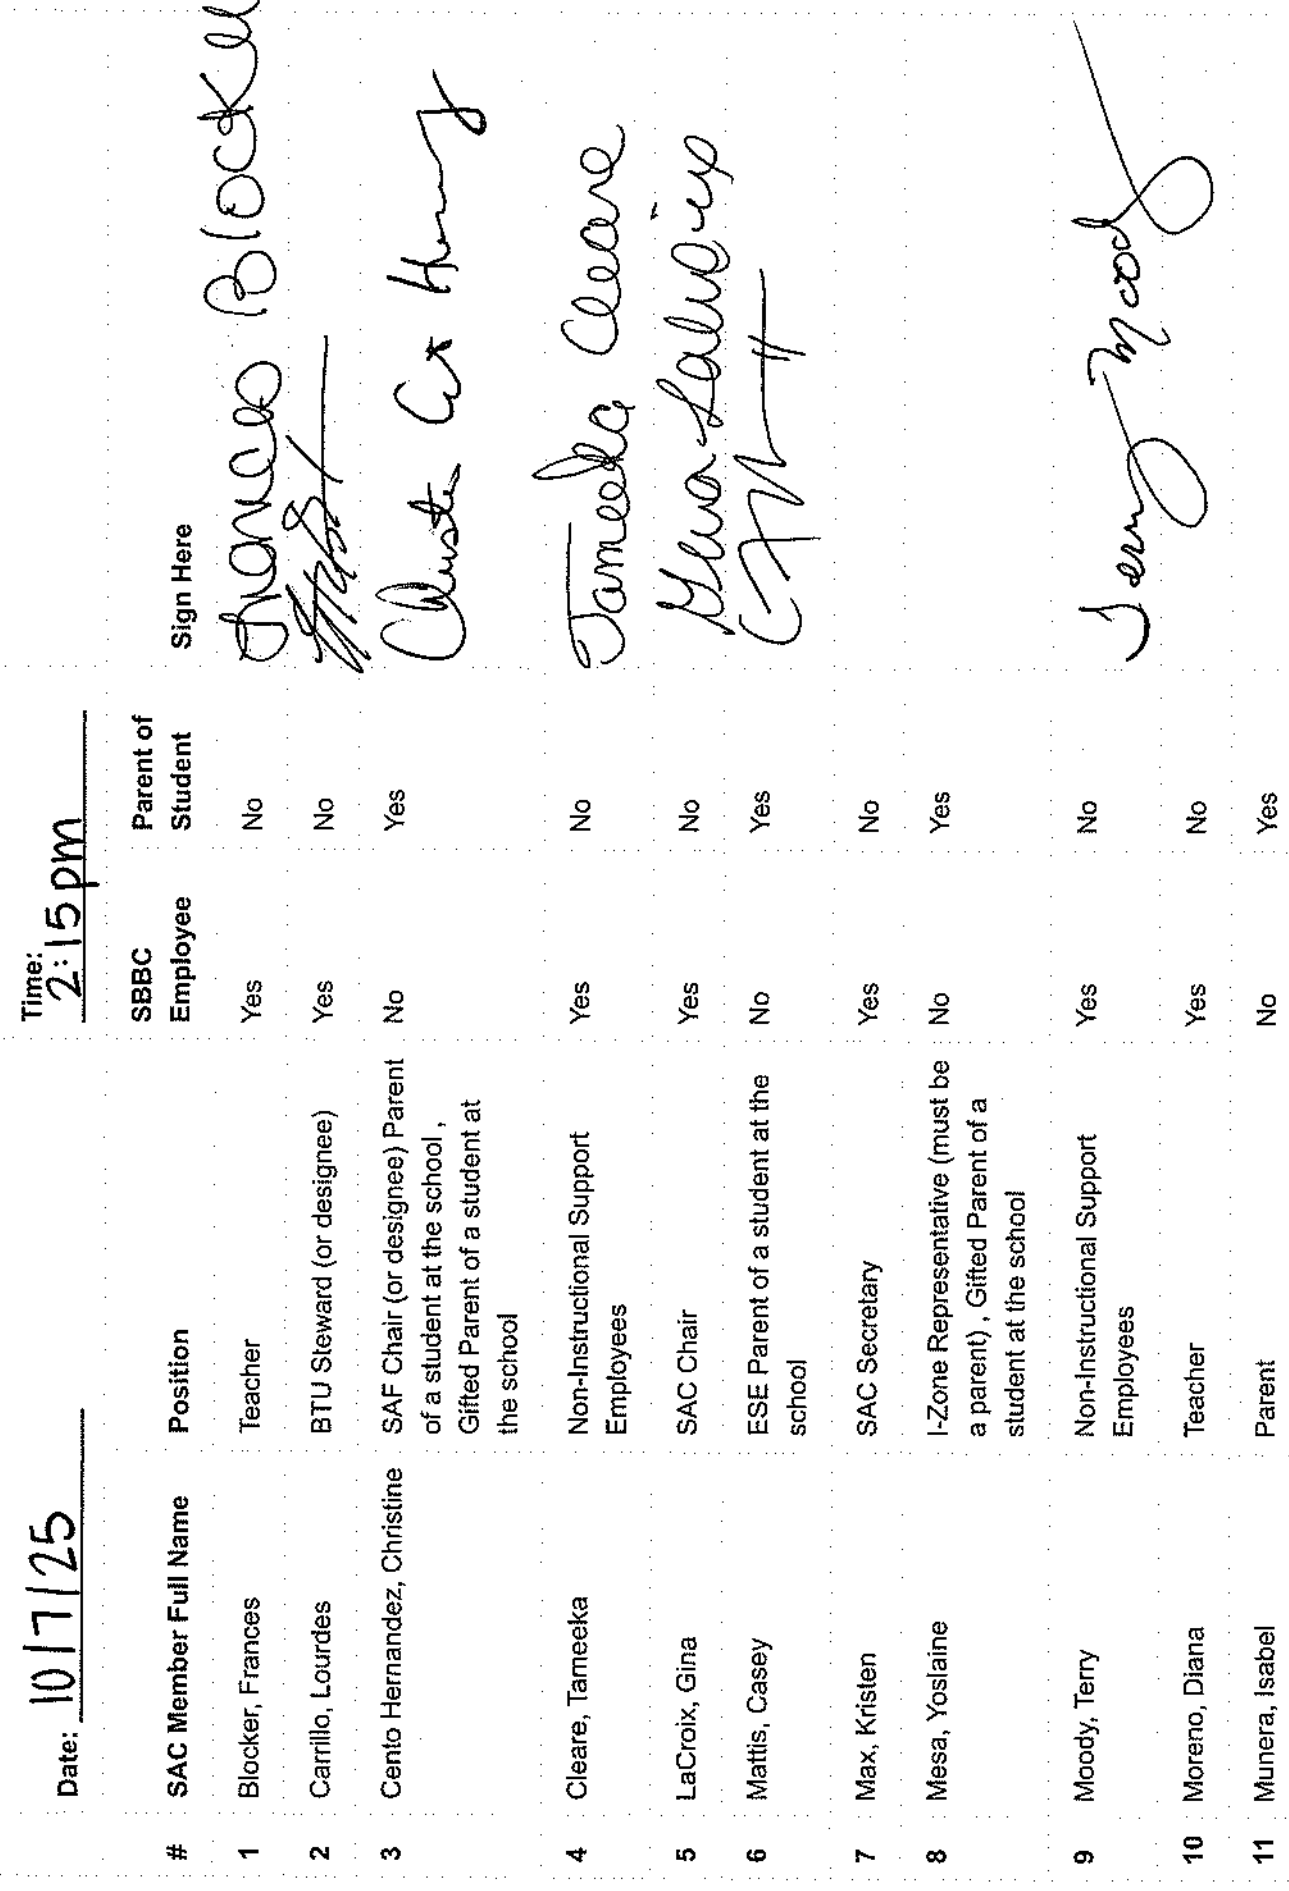 Date: 10/7/25 Time: 2:15pm
# SAC Member Full Name Position SBBC Employee Parent of Student Sign Here
1 Blocker, Frances Teacher Yes No Frances Blocker
2 Carrillo, Lourdes BTU Steward (or designee) Yes No
3 Cento Hernandez, Christine SAF Chair (or designee) Parent No Yes
of a student at the school ,
Gifted Parent of a student at
the school
4 Cleare, Tameeka Non-Instructional Support Yes No Tameeka Cleare
Employees
5 LaCroix, Gina SAC Chair Yes No Gina LaCroix
6 Mattis, Casey ESE Parent of a student at the No Yes
school
7 Max, Kristen SAC Secretary Yes No
8 Mesa, Yoslaine I-Zone Representative (must be No Yes
a parent) , Gifted Parent of a
student at the school
9 Moody, Terry Non-Instructional Support Yes No Terry Moody
Employees
10 Moreno, Diana Teacher Yes No
11 Munera, Isabel Parent No Yes